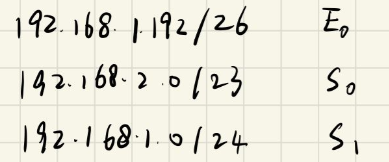 192.168.1.192/26 E₀
192.168.2.0/23 S₀
192.168.1.0/24 S₁